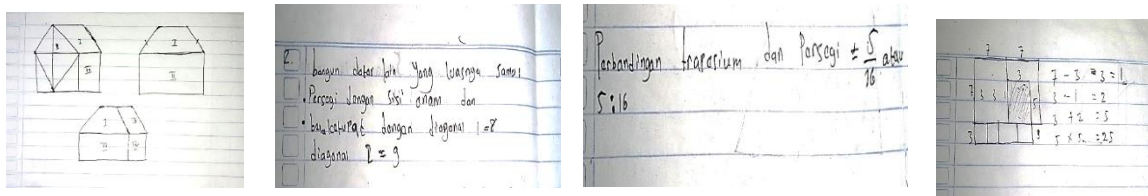 I
II
I
II
I
II
2.
bangun datar lain yang luasnya sama:
• Persegi dengan sisi enam dan
• belah ketupat dengan diagonal 1 = 8
diagonal 2 = 9
Perbandingan trapesium dan Persegi ± 5/16 atau
5:16
7 7
3
7 - 3 = 3 = 1
3 - 1 = 2
3 + 2 = 5
5 x 5 = 25
7 3 3
3